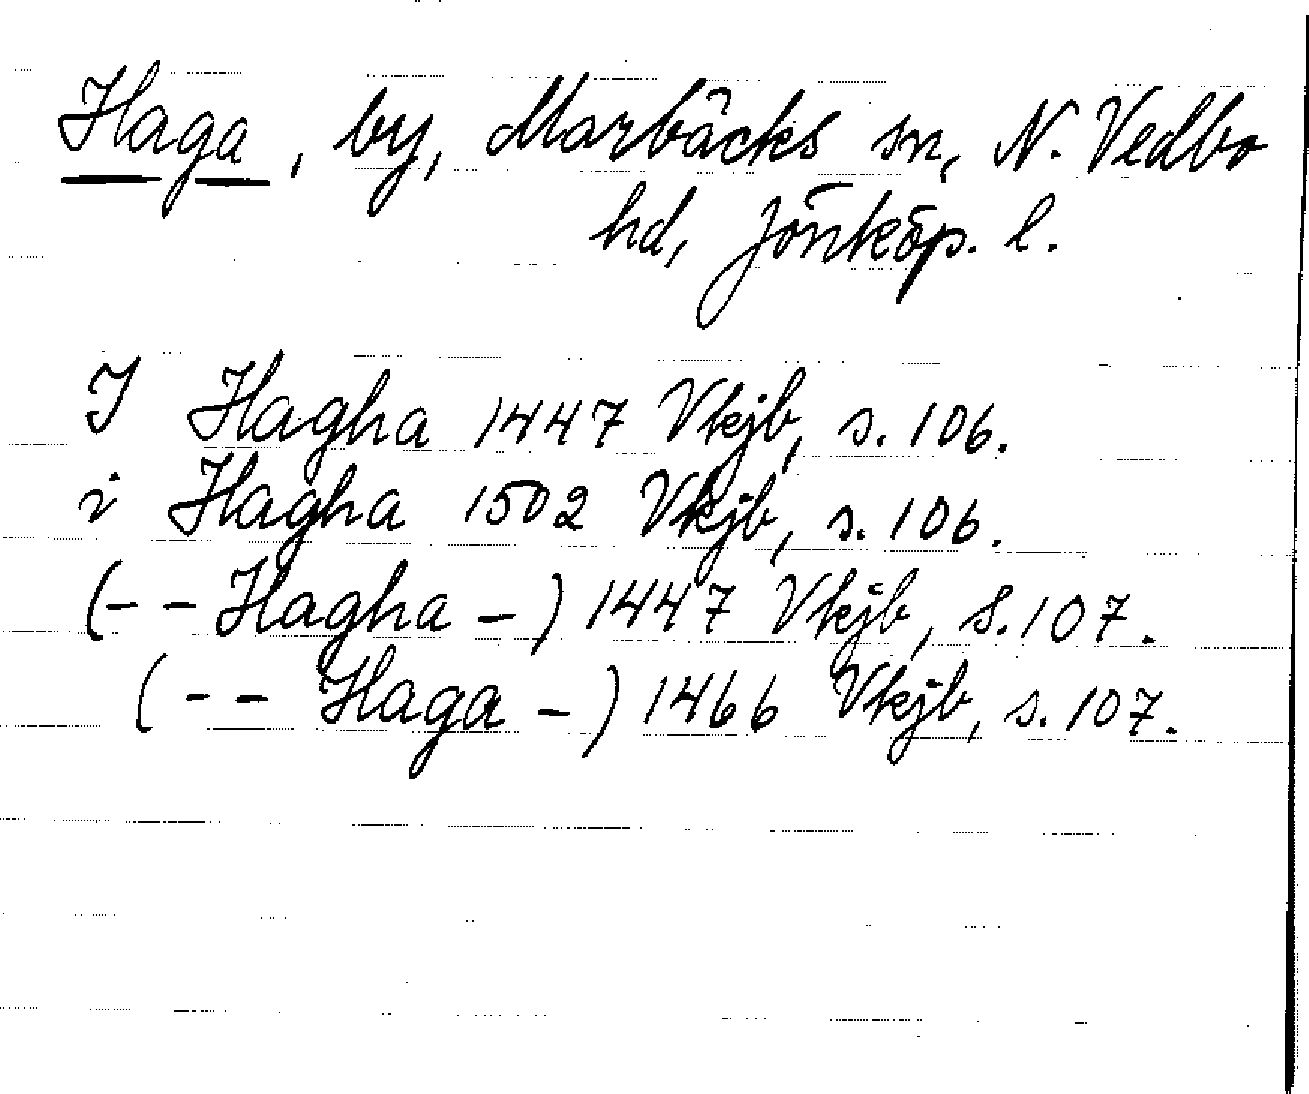 Haga, by, Marbäcks sn, N. Vedbo
hd, Jönköp. l.
I Hagha 1447 Vkjb, s. 106.
i Hagha 1502 Vkjb, s. 106.
(- - Hagha -) 1447 Vkjb, s. 107.
(- - Haga -) 1466 Vkjb, s. 107.